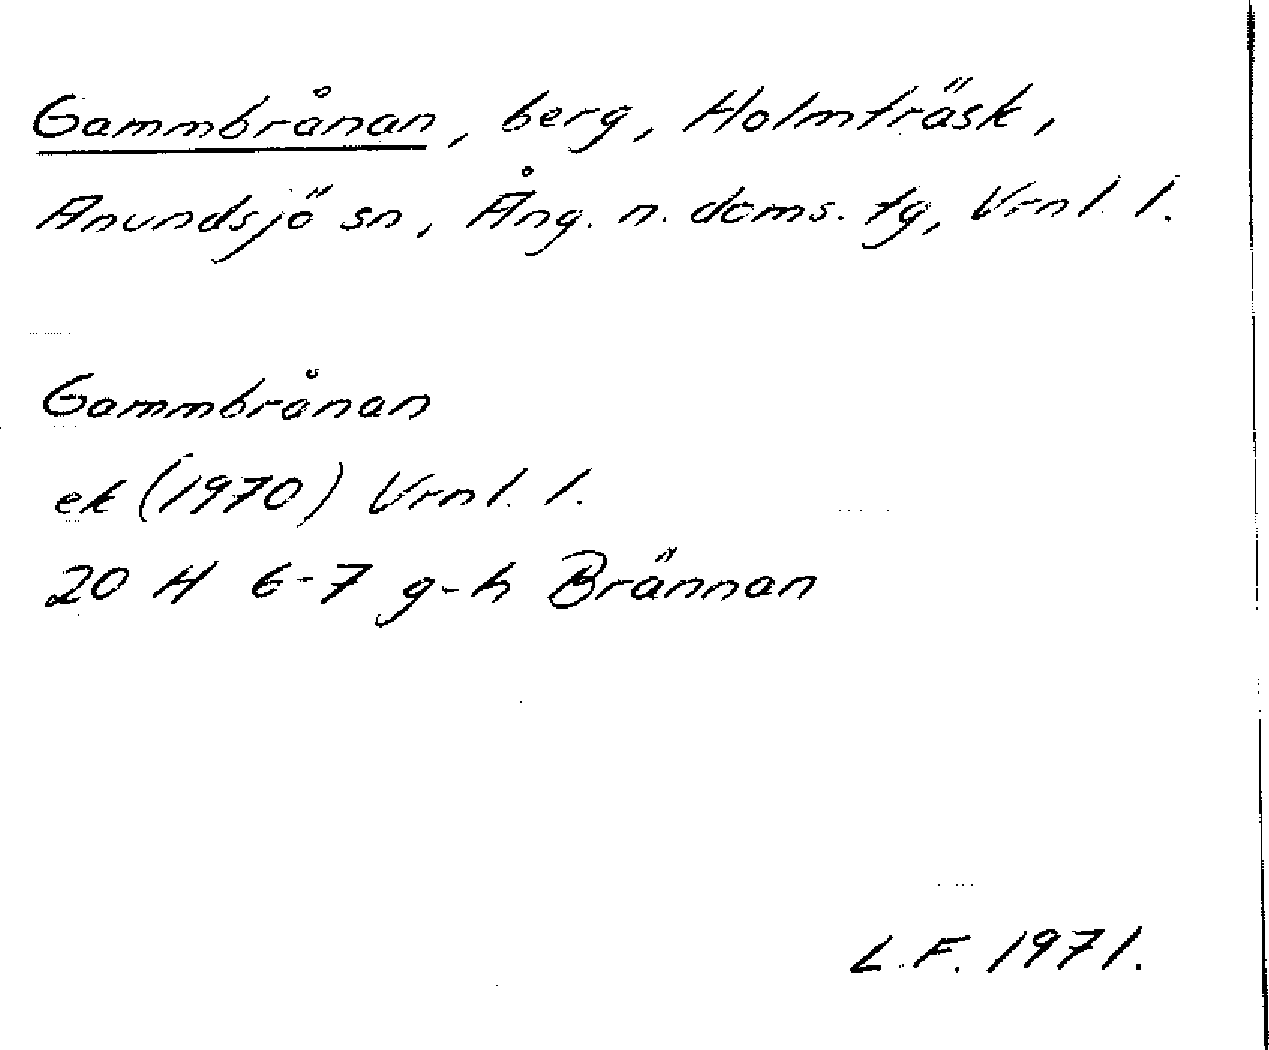 Gammbrånan, berg, Holmträsk,
Anundsjö sn, Ång. n. doms. tg, Vrnl. l.
Gammbrånan
ek (1970) Vrnl. l.
20 H 6-7 g-h Brännan
L.F. 1971.